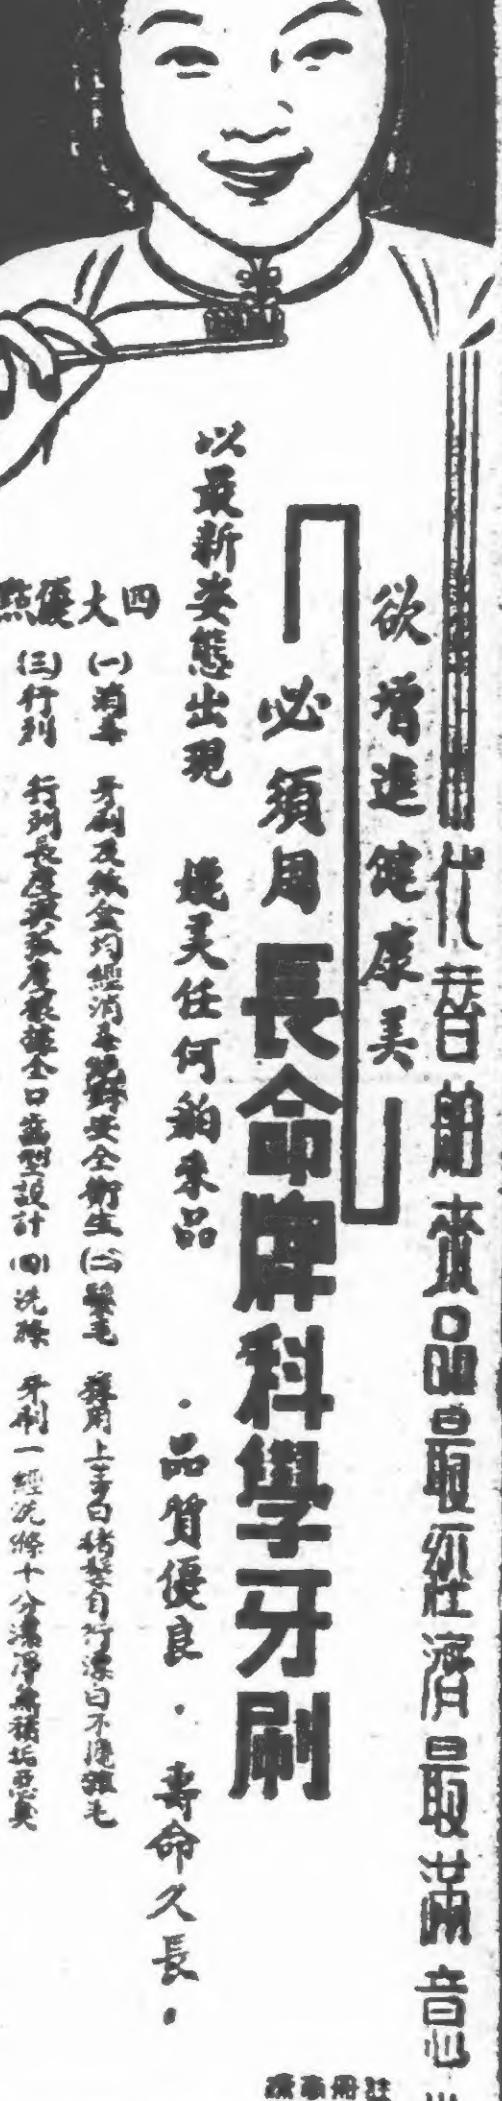 代替舶來品最經濟最滿意
欲增進健康美
必須用長命牌科學牙刷
以最新姿態出現 媲美任何舶來品
·品質優良·壽命久長·
四大優點
(一)消毒 牙刷及紙盒均經消毒絕對安全衛生(二)鬃毛 採用上等白猪鬃自行漂白不摻雜毛
(三)行列 行列長度與弧度根據全口齒型設計(四)洗滌 牙刷一經洗滌十分潔淨無積垢惡臭
註冊商標